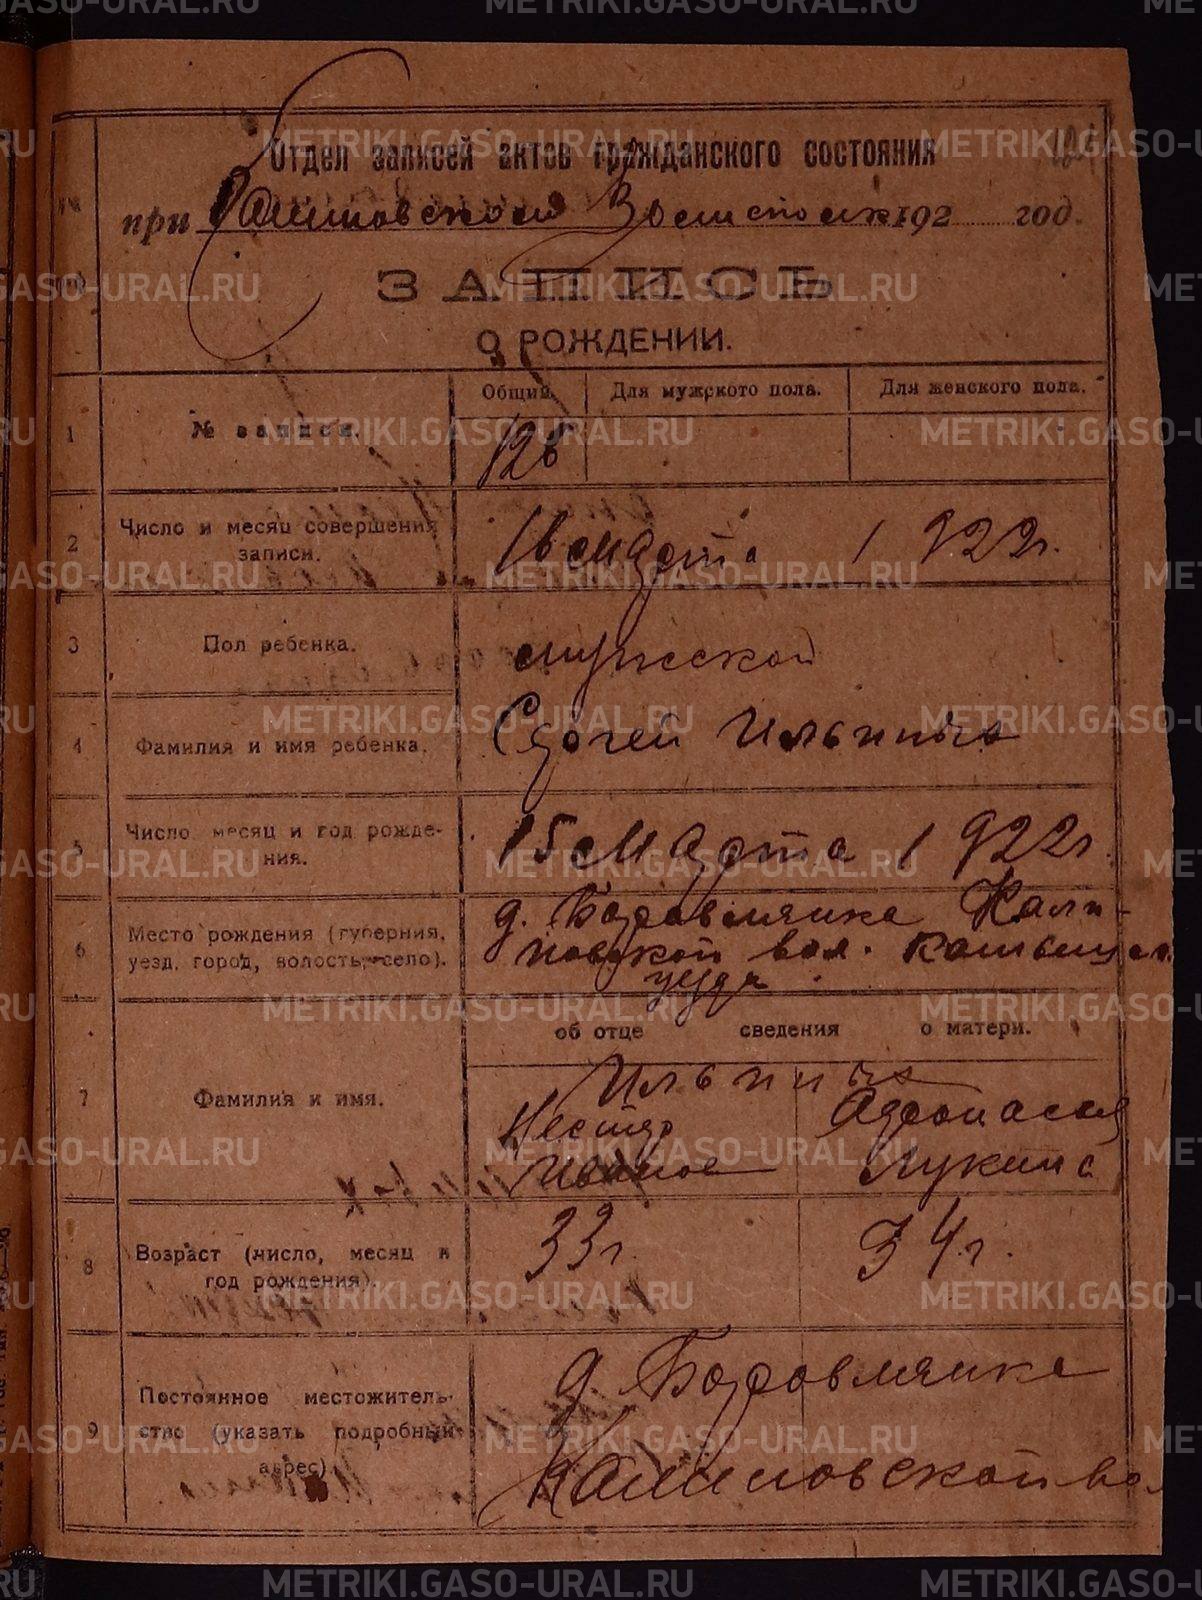 METRIKI.GASO-URAL.RU
Отдел записей актов гражданского состояния
при Калиновском Волисполк. 192 год.
ЗАПИСЬ
О РОЖДЕНИИ.
Общий. Для мужского пола. Для женского пола.
1 № записи. 128
2 Число и месяц совершения записи. 16 марта 1922г.
3 Пол ребенка. мужской
4 Фамилия и имя ребенка. Сергей Ильиных
5 Число, месяц и год рожде-
ния. 15 марта 1922г.
6 Место рождения (губерния,
уезд, город, волость, село). д. Боровлянка Кали-
новской вол. Камышл.
уезда
об отце сведения о матери.
7 Фамилия и имя. Ильиных
Нестер Афонасия
Иванов Лукина
8 Возраст (число, месяц и
год рождения). 33г. 34г.
9 Постоянное местожитель-
ство (указать подробный
адрес). д. Боровлянка
Калиновской вол